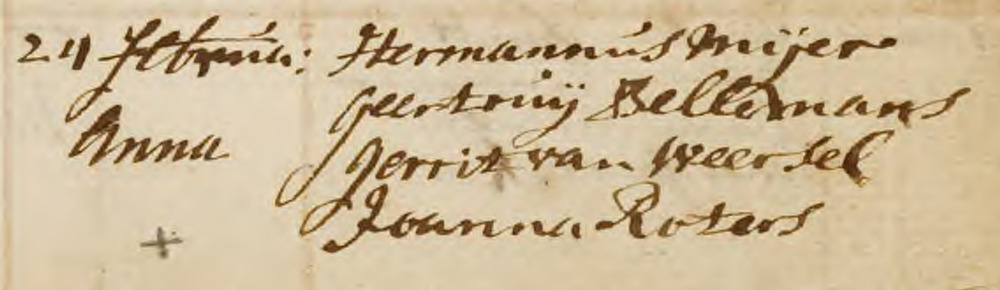 24 Februa: Hermannus Mijer
Geertruij Bellemans
Anna Gerrit van Weersel
Joanna Roters
+